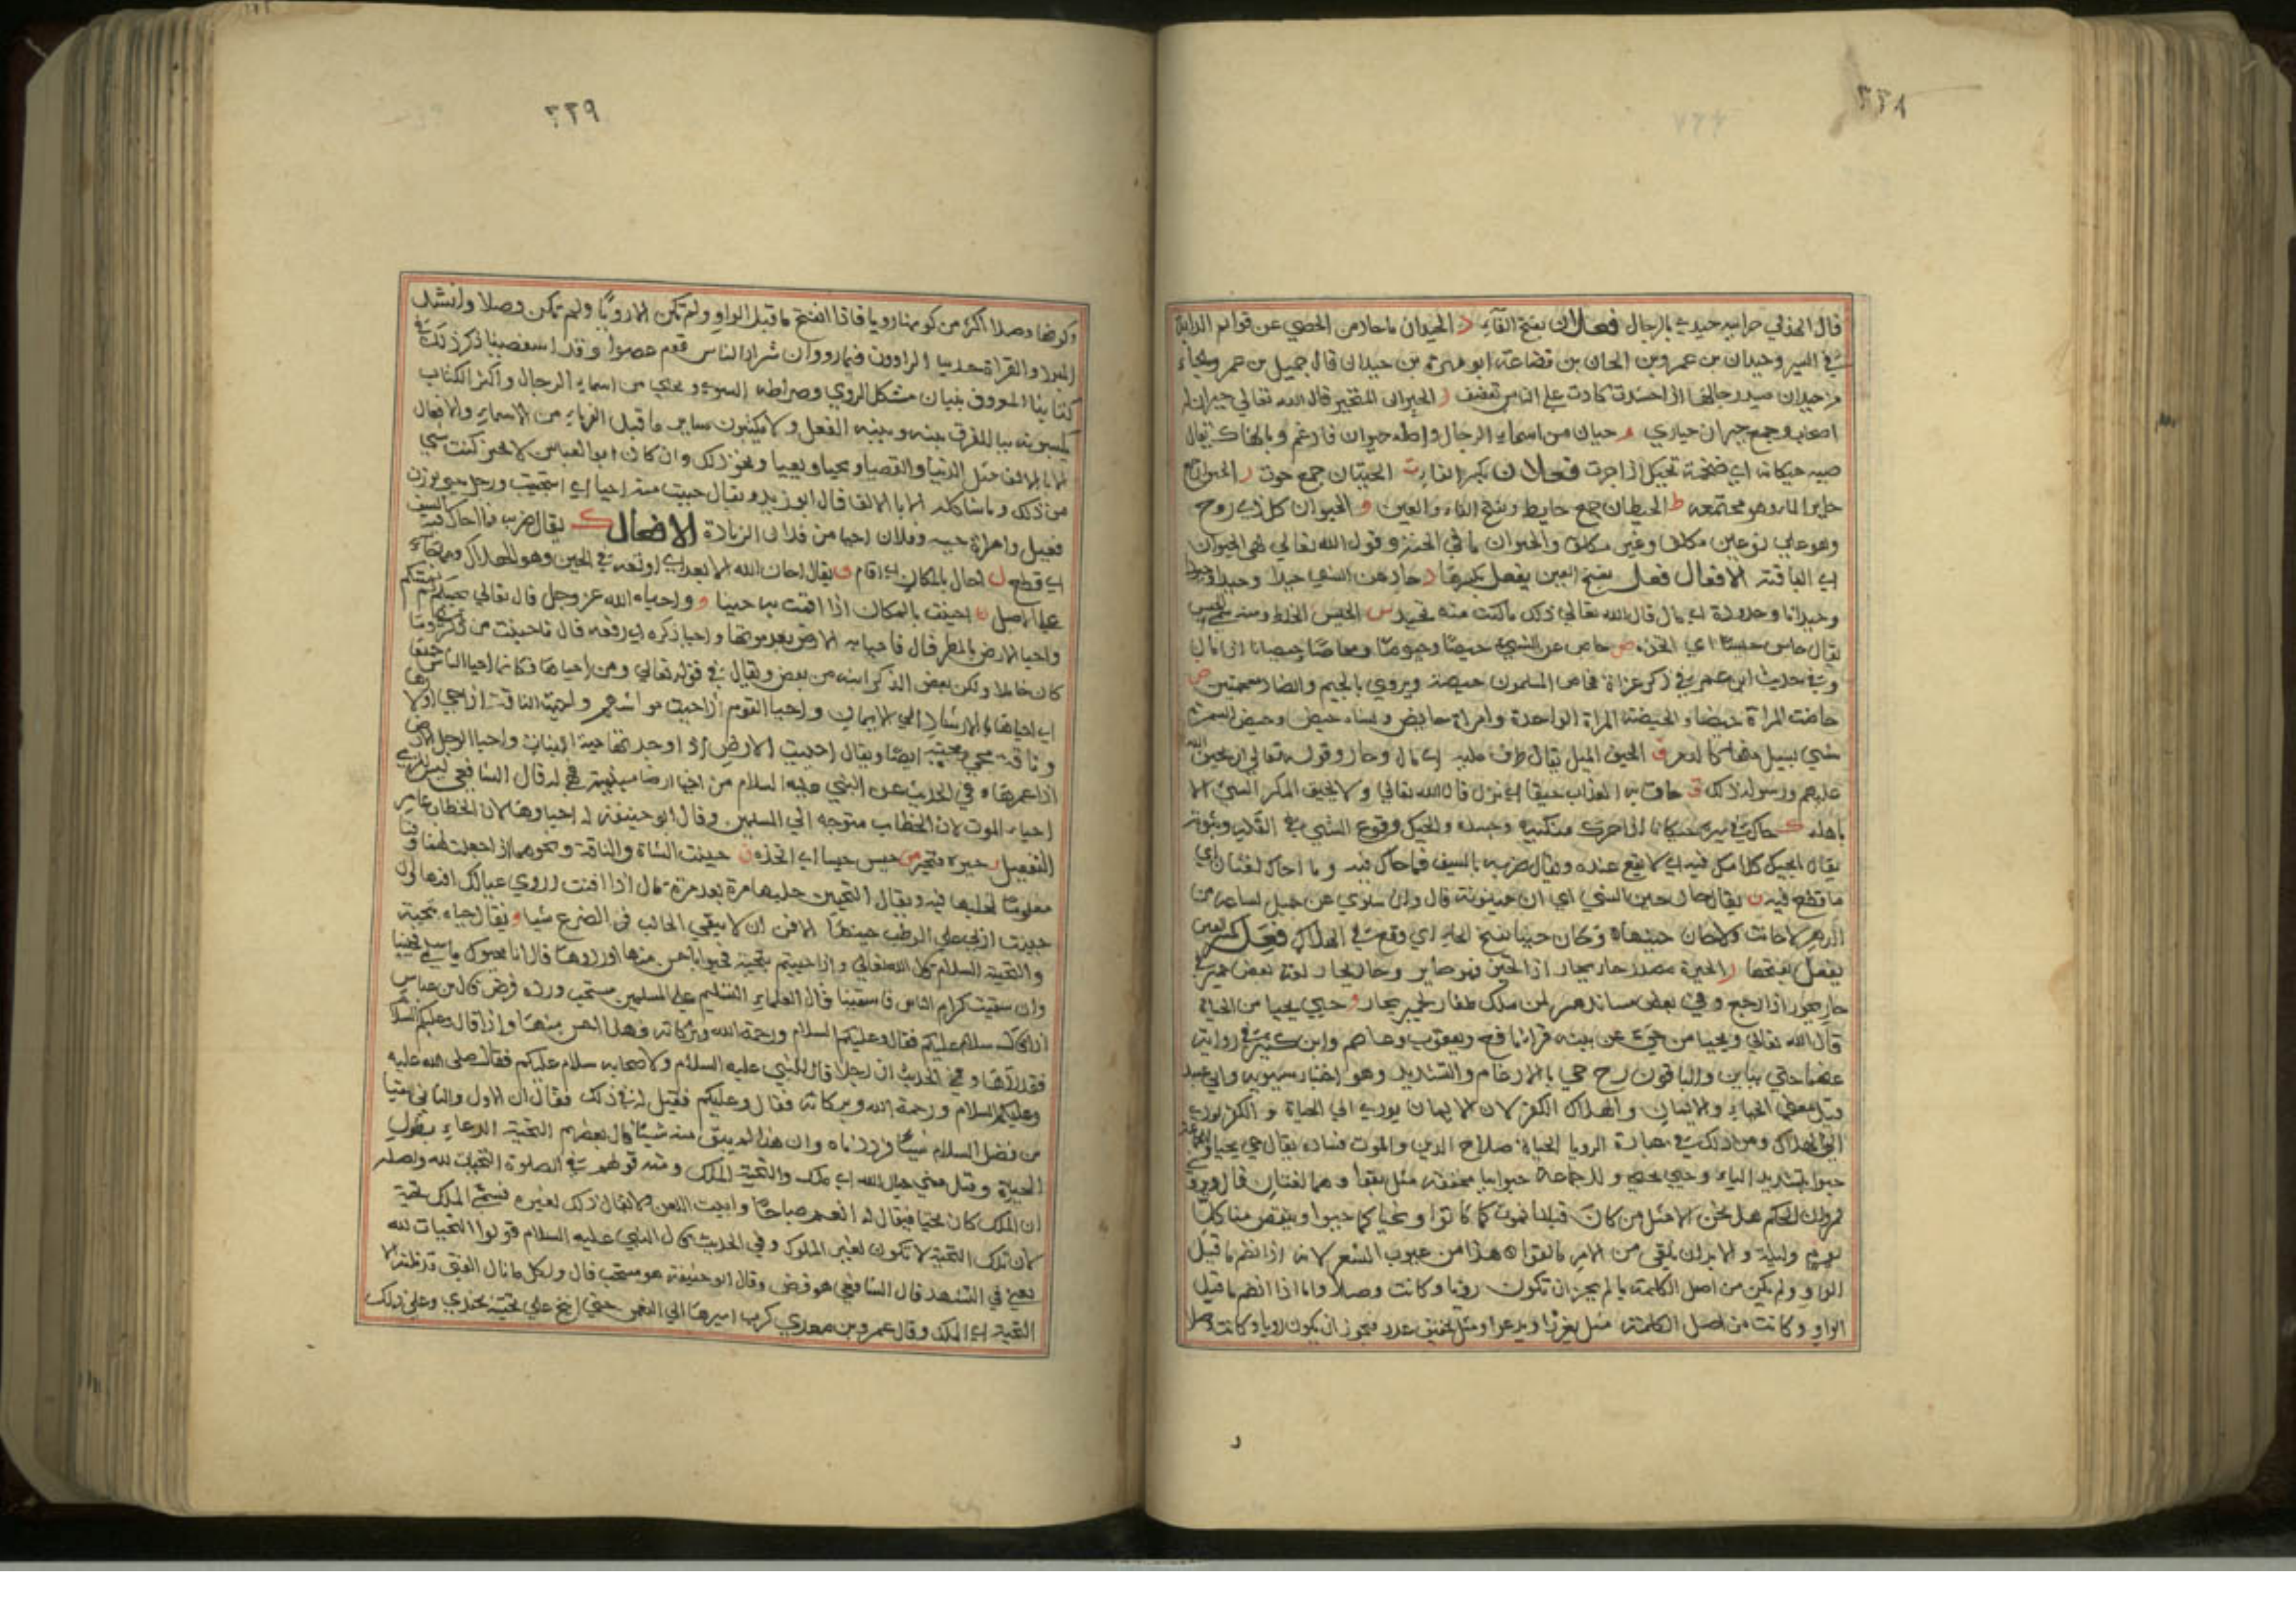 ٢٢٨
قال الهذلي حزابية حيدى بالرجال فعلان بفتح الفاء د الحيدان ما حاد من الحصى عن قوائم الدابة
في السير وحيدان بن عمرو بن الحاف بن قضاعة ابو مهرة بن حيدان قال جميل بن معمر
من حيدان صيد رجالها كادت على الناس تضعف ر الحيران المتحير قال الله تعالى حيران له
اصحاب وجمع حيران حيارى ن حيان من اسماء الرجال واصله حيوان فادغم وبالهاء ك يقال
ضبة حيكانة اي ضخمة تحيك اذا جرت فعلان بكسر الفاء ت الحيتان جمع حوت ر الحيران جمع
حاير الماء وهو مجتمعه ط الحيطان جمع حايط وبفتح الفاء والعين و الحيوان كل ذي روح
وهو على نوعين مكلف وغير مكلف والحيوان ماء في الجنة وقول الله تعالى لهي الحيوان
اي الباقية الافعال فعل بفتح العين يفعل بكسرها د حاد عن الشي حيدا وحيودا
وحيدانا وحيدودة اي مال قال الله تعالى ذلك ما كنت منه تحيد س الحيس الخلط ومنه سمي الحيس
يقال حاس حيسا اي اتخذه ص حاص عن الشي حيصا وحيوصا ومحاصا وحيصانا اي مال
وفي حديث ابن عمر في ذكر غزاة فحاص المسلمون حيصة ويروى بالجيم والضاد معجمتين ض
حاضت المراة حيضا والحيضة المرة الواحدة وامراة حايض ونساء حيض وحيض السمرة
شي يسيل منها كالدم ف الحيف الميل يقال حاف عليه اي مال وجار وقوله تعالى ان يحيف الله
عليهم ورسوله ذلك ق حاق به العذاب حيقا اي نزل قال الله تعالى ولا يحيق المكر السيئ الا
باهله ك حاك في مشيه حيكانا اذا حرك منكبيه وجسده والحيك وقوع الشي في القلب وثبوته
يقال ما يحيك كلامك فيه اي لا يقع عنده ويقال ضربه بالسيف فما حاك فيه وما احاك لغتان اي
ما قطع فيه ن يقال حان حين الشي اي ان حينونة قال وان سلوي عن جميل لساعة من
الدهر لا حانت ولا حان حينها ه وحان حينا بفتح الحاء اي وقع في الهلاك فعل بكسر العين
يفعل بفتحها ر الحيرة مصدر حار يحار اذا تحير فهو حاير وحار يحار لغة بعض حمير في
حار يحور اذا رجع وفي بعض مساند حمير لمن ملك ظفار لحمير يحار و حيي يحيا من الحياة
قال الله تعالى ويحيا من حي عن بينة قرا نافع ويعقوب وعاصم وابن كثير في رواية
عنهما حيي بياين والباقون رح حي بالادغام والتشديد وهو اختيار سيبويه وابي عبيد
قيل معنى الحياة الايمان والهلاك الكفر لان الايمان يودي الى الحياة والكفر يودي
الى الهلاك ومن ذلك في عبارة الرويا الحياة صلاح الدين والموت فساده يقال حي يحيا وللجماعة
حيوا بتشديد الياء وحيي يحيى وللجماعة حيوا بيا مخففة مثل بقوا وهما لغتان قال
عمرو بن الحكم هل نحن الا مثل من كان قبلنا نموت كما كانوا ونحيا كما حيوا وينقص منا كل
يوم وليلة ولا بد ان نلقى من الامر ما لقوا ه هذا من عيوب الشعر لانه اذا انضم ما قبل
الواو ولم يكن من اصل الكلمة يا لم يجز ان تكون رويا وكانت وصلا واما اذا انضم ما قبل
الواو وكانت من اصل الكلمة مثل يغزوا ويدعوا ومثل يحتى عدد فيجوز ان يكون رويا وكانت وصلا
٢٢٩
وكونها وصلا اكثر من كونها رويا فاذا انفتح ما قبل الواو ولم تكن الا رويا ولم تكن وصلا وانشد
المبرد والقراة حدبيا الراوون فيما رووا ان شرار الناس قوم عصوا وقد استقصينا ذكر ذلك في
كتابنا المعروف ببيان مشكل الروي وصراطه السوي ويحيى من اسماء الرجال واكثر الكتاب
يكتبونه بيا للفرق بينه وبين الفعل ولا يكتبون ساير ما قبل اخره ياء من الاسماء والافعال
الا بالالف مثل الدنيا والقصيا ويحيا ويعيا ونحو ذلك وان كان ابو العباس لا يجيز كتب شي
من ذلك وما شاكله الا بالالف قال ابو زيد ويقال حييت منه احيا اي استحييت ورجل حيي بوزن
فعيل وامراة حيية وفلان احيا من فلان الزيادة الافعال ك يقال ضربه فما احاك فيه السيف
اي قطع ل احال بالمكان اي اقام ن ويقال احان الله الابعد اي اوقعه في الحين وهو الهلاك
على الاصل ن احينت بالمكان اذا اقمت به حينا و واحياه الله عز وجل قال تعالى يحييكم ثم يميتكم
واحيا الارض بالمطر قال فاحيا به الارض بعد موتها واحيا ذكره اي رفعه قال فاحييت من ذكري وما
كان خاملا ولكن بعض الذكر انبه من بعض ويقال في قوله تعالى ومن احياها فكانما احيا الناس جميعا
اي احياها بالارشاد الى الايمان واحيا القوم اذا حييت مواشيهم واحيت الناقة اذا حيي اولادها
وناقة محي ومحيية ايضا ويقال احييت الارض اذا وجدتها حية النبات واحيا الرجل الارض
اذا عمرها ه في الحديث عن النبي عليه السلام من احيا ارضا ميتة فهي له قال الشافعي ليس للذمي
احياء الموت لان الخطاب متوجه الى المسلمين وقال ابو حنيفة له احياوها لان الخطاب عام
التفعيل ر حيره فتحير س حيس حيسا اي اتخذه ن حينت الشاة والناقة ونحوهما اذا جعلت لها وقتا
معلوما لحلبها فيه ويقال التحيين حلبها مرة بعد مرة قال اذا افنت اروى عيالك افنها وان
حينت اربى على الوطب حينها الافن ان لا يبقي الحالب في الضرع شيا و يقال حياه تحية
والتحية السلام قال الله تعالى واذا حييتم بتحية فحيوا باحسن منها او ردوها قال انا محيوك يا سلمى فحيينا
وان سقيت كرام الناس فاسقينا قال العلماء التسليم على المسلمين مستحب ورده فرض قال ابن عباس
اذا قال سلام عليكم فقال وعليكم السلام ورحمة الله وبركاته فهذا احسن منها واذا قال وعليكم السلام
فقد ردها وفي الحديث ان رجلا قال للنبي عليه السلام ولاصحابه سلام عليكم فقال صلى الله عليه
وعليكم السلام ورحمة الله وبركاته فقال وعليكم فقيل له في ذلك فقال ان الاول والثاني بقيا
من فضل السلام شيا ورددناه وان هذا لم يبق منه شيا قال بعضهم التحية الدعاء بطول
الحياة وقيل معنى حياك الله اي ملكك والتحية الملك ومنه قولهم في الصلوة التحيات لله واصله
ان الملك كان يحيا فيقال له انعم صباحا وابيت اللعن ولا يقال ذلك لغيره فسمي الملك تحية
لان تلك التحية لا تكون لغير الملوك وفي الحديث قال النبي عليه السلام قولوا التحيات لله
يعني في التشهد قال الشافعي هو فرض وقال ابو حنيفة هو مستحب قال ولكل ما نال الفتى قد نلته الا
التحية اي الملك وقال عمرو بن معدي كرب اسيرها الى النعمان حتى انيخ على تحيته بجندي وعلى ذلك